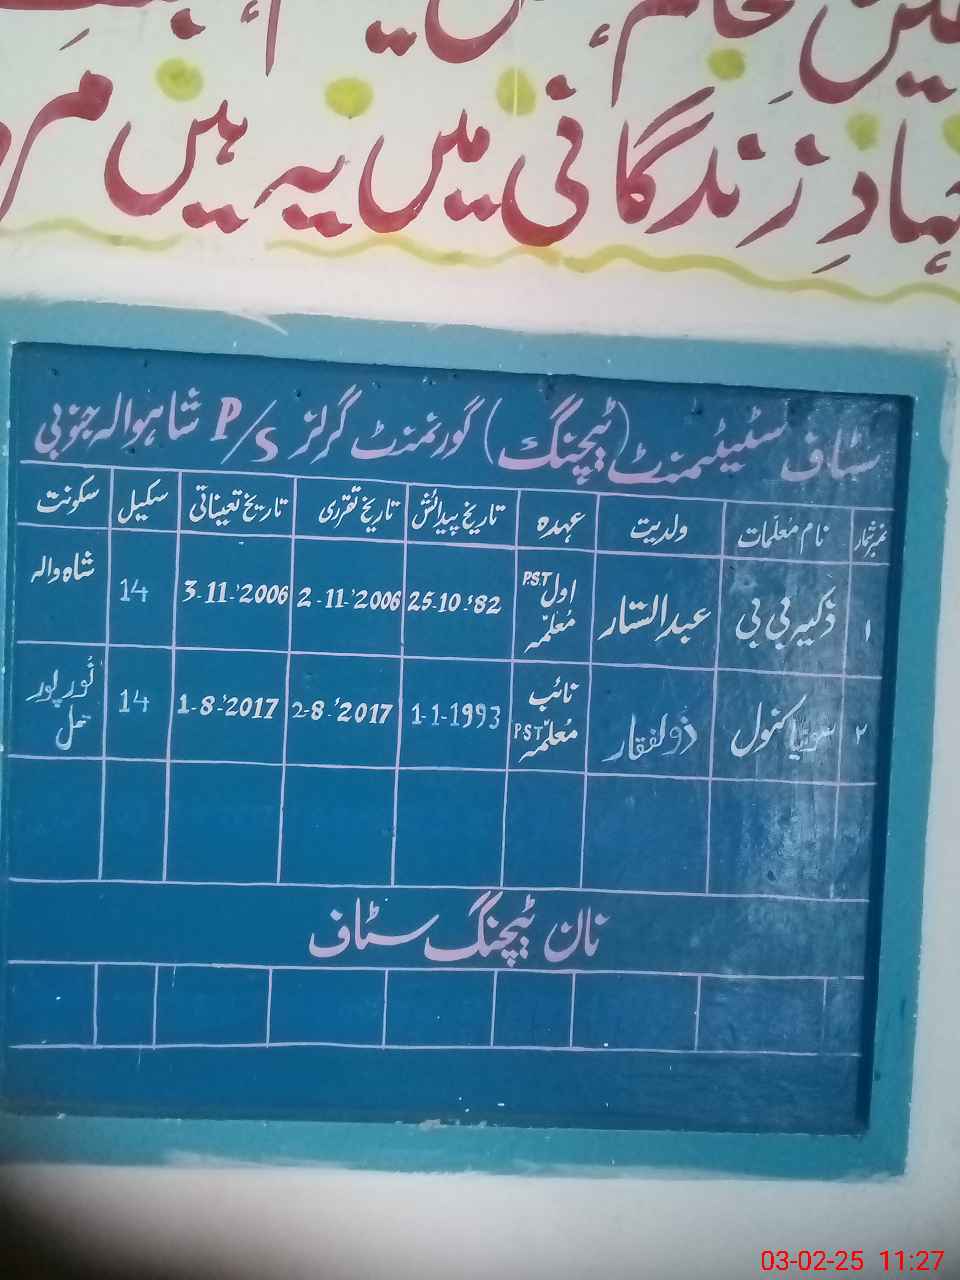 جہادِ زندگانی میں یہ ہیں
سٹاف سٹیٹمنٹ (ٹیچنگ) گورنمنٹ گرلز P/S شاہوالہ جنوبی
نمبر شمار نام معلّمات ولدیت عہدہ تاریخ پیدائش تاریخ تقرری تاریخ تعیناتی سکیل سکونت
۱ ذکیہ بی بی عبدالستار اول P.S.T معلّمہ 25-10-'82 2-11-'2006 3-11-'2006 14 شاہ والہ
۲ کنول ذولفقار نائب معلّمہ P.S.T 1-1-1993 2-8-'2017 1-8-'2017 14 نُور پور
نان ٹیچنگ سٹاف
03-02-25 11:27